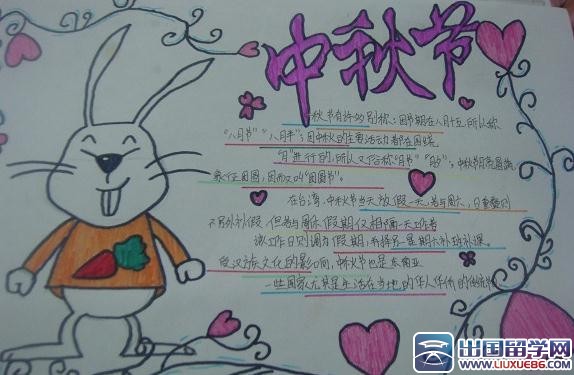 中秋节
中秋节有许多别称：因节期在八月十五,所以称
“八月节”“八月半”；因中秋的主要活动都在围绕
“月”进行的,所以又俗称“月节”“月夕”，中秋节月亮圆满,
象征团圆,因而又叫“团圆节”。
在台湾,中秋节当天放假一天,若与周六、日重叠则
不另外补假,但若与周休假期仅相隔一天工作者
该工作日则调为假期,再择另星期六补班补课。
受汉族文化的影响,中秋节也是东南亚
一些国家尤其是生活在当地的华人华侨的传统节
出国留学网
WWW.LIUXUE86.COM